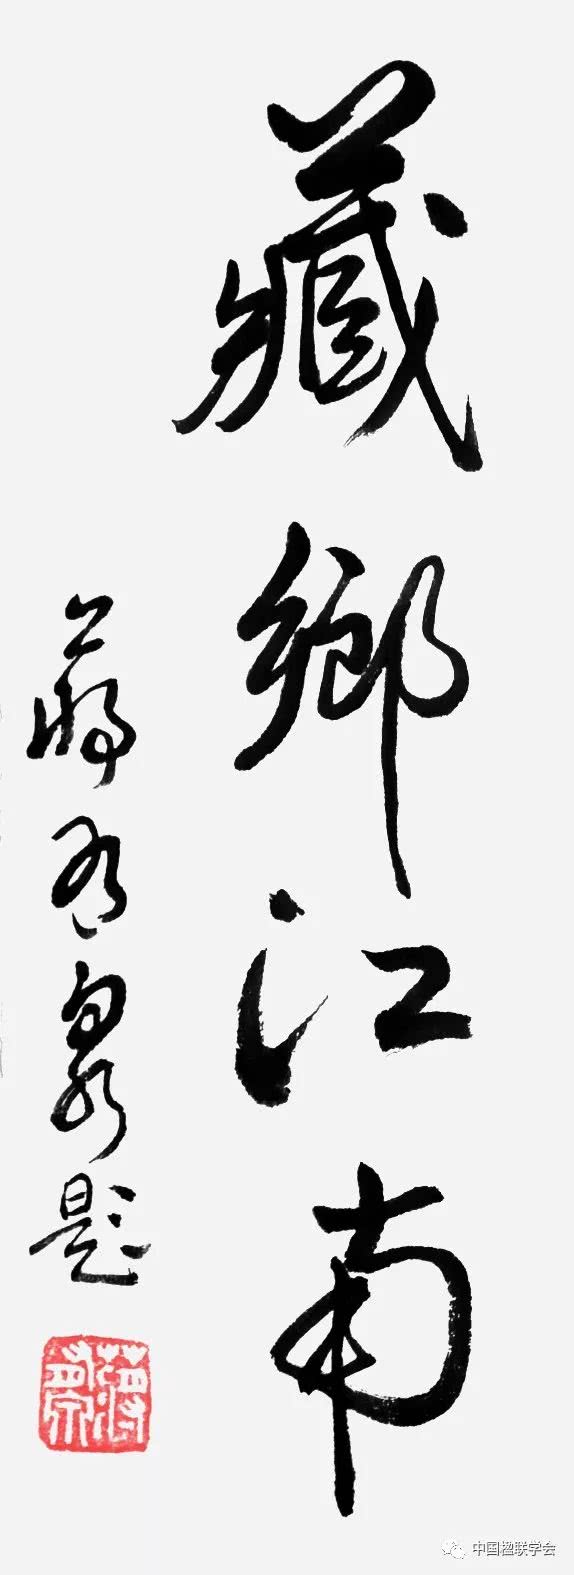 藏鄉江南
蔣有泉題
蔣有泉
中国楹联学会